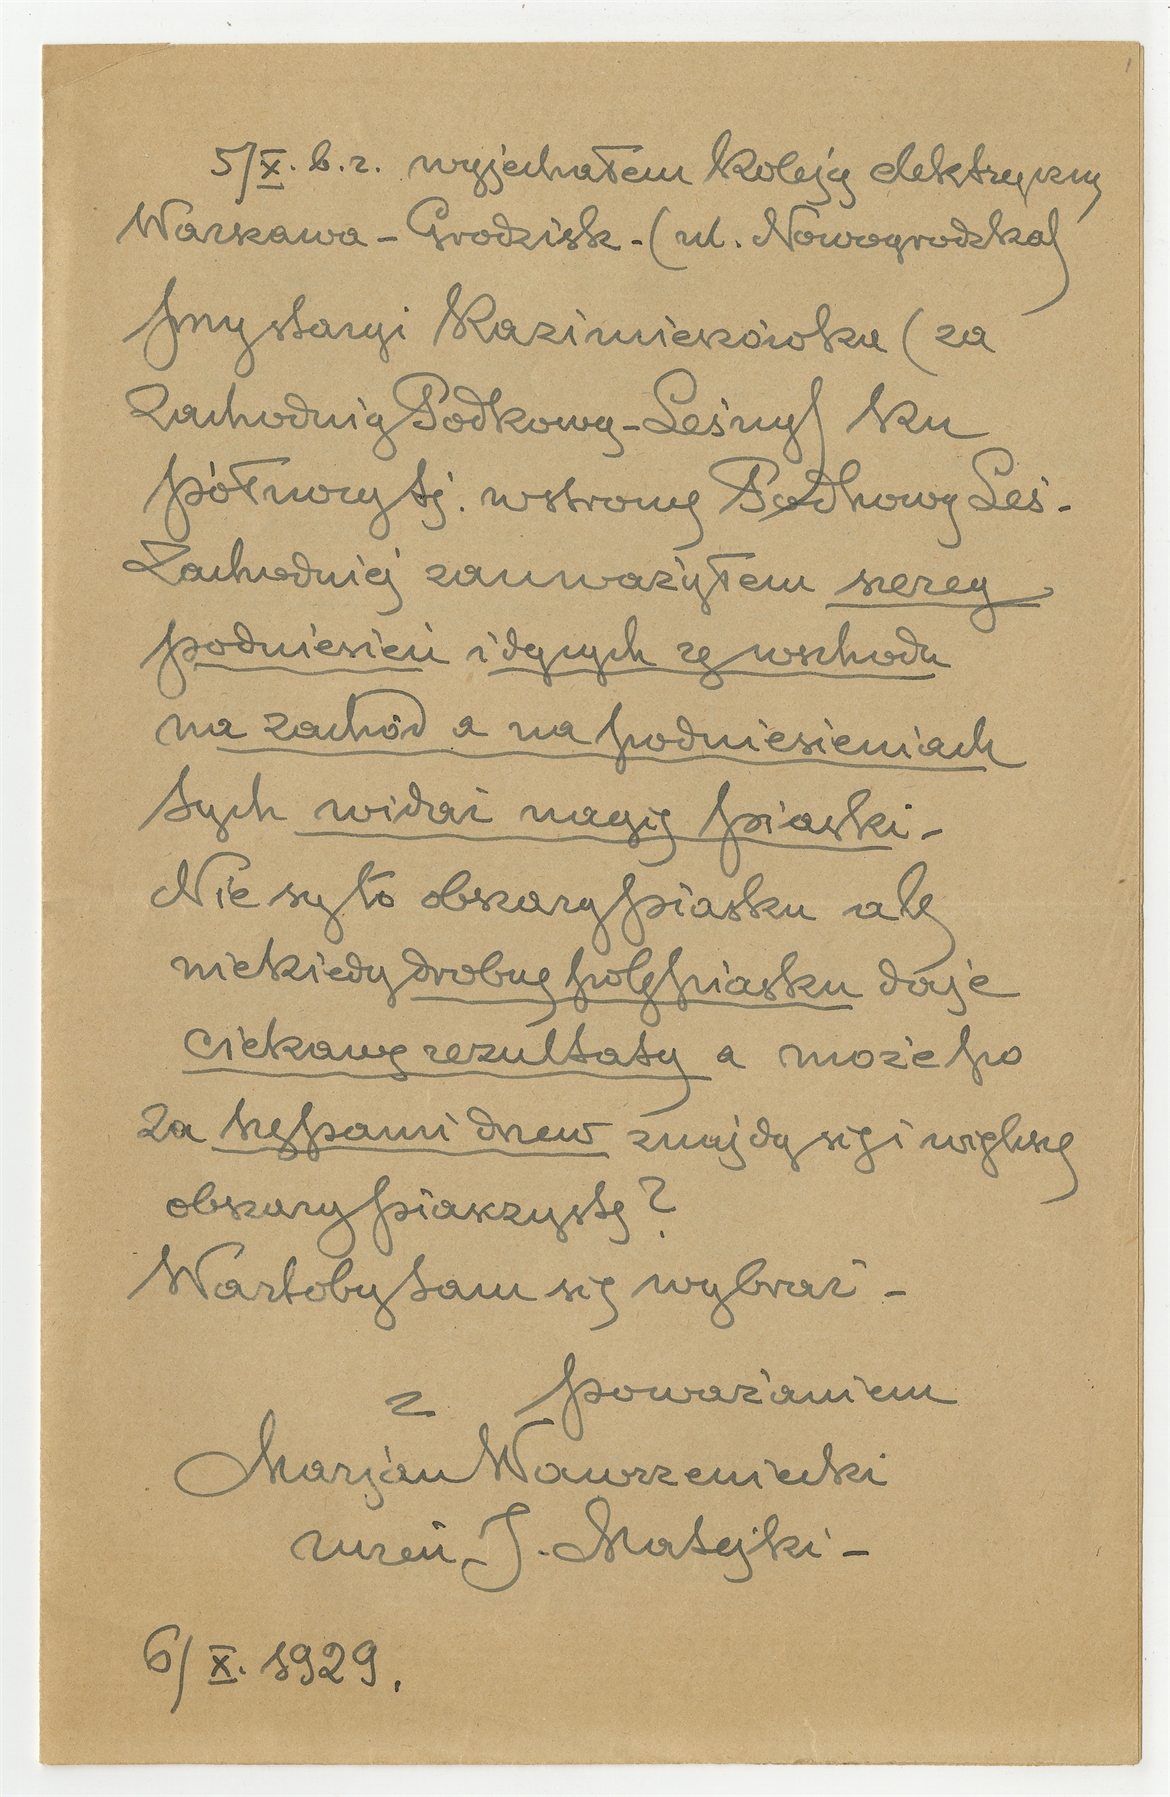 5/X. b.r. wyjechałem koleją elektryczną
Warszawa – Grodzisk – (ul. Nowogrodzka)
przy stacyi Kazimierzówka (za
Zachodnią Podkową-Leśną) ku
północy tj. w stronę Podkowy Leś-
Zachodniej zauważyłem szereg
podniesień idących ze wschodu
na zachód a na podniesieniach
tych widać nagie piaski. –
Nie są to obszary piasku ale
niekiedy drobne pole piasku daje
ciekawe rezultaty a może po
za kępami drzew znajdą się i większe
obszary piaszczyste?
Wartoby tam się wybrać –
z poważaniem
Marjan Wawrzeniecki
uczeń J. Matejki –
6/X. 1929.